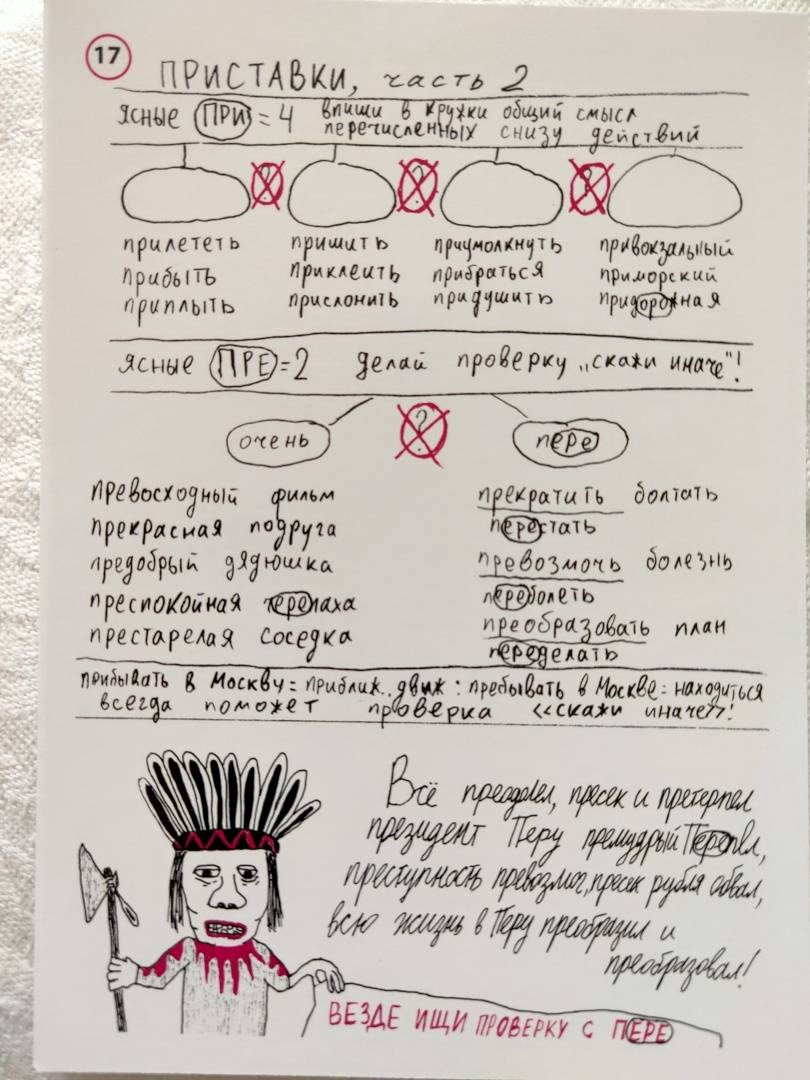 17
ПРИСТАВКИ, часть 2
ясные ПРИ = 4 впиши в кружки общий смысл
перечисленных снизу действий
? ? ?
прилететь пришить приумолкнуть привокзальный
прибыть приклеить прибраться приморский
приплыть прислонить придушить придорожная
ясные ПРЕ = 2 делай проверку „скажи иначе"!
очень ? пере
превосходный фильм прекратить болтать
прекрасная подруга перестать
предобрый дядюшка превозмочь болезнь
преспокойная черепаха переболеть
престарелая соседка преобразовать план
переделать
прибывать в Москву = приближ. движ : пребывать в Москве = находиться
всегда поможет проверка <<скажи иначе>>!
Всё преодолел, пресек и претерпел
президент Перу премудрый Перепел,
преступность превозмог, пресек рубля обвал,
всю жизнь в Перу преобразил и
преобразовал!
ВЕЗДЕ ИЩИ ПРОВЕРКУ С ПЕРЕ